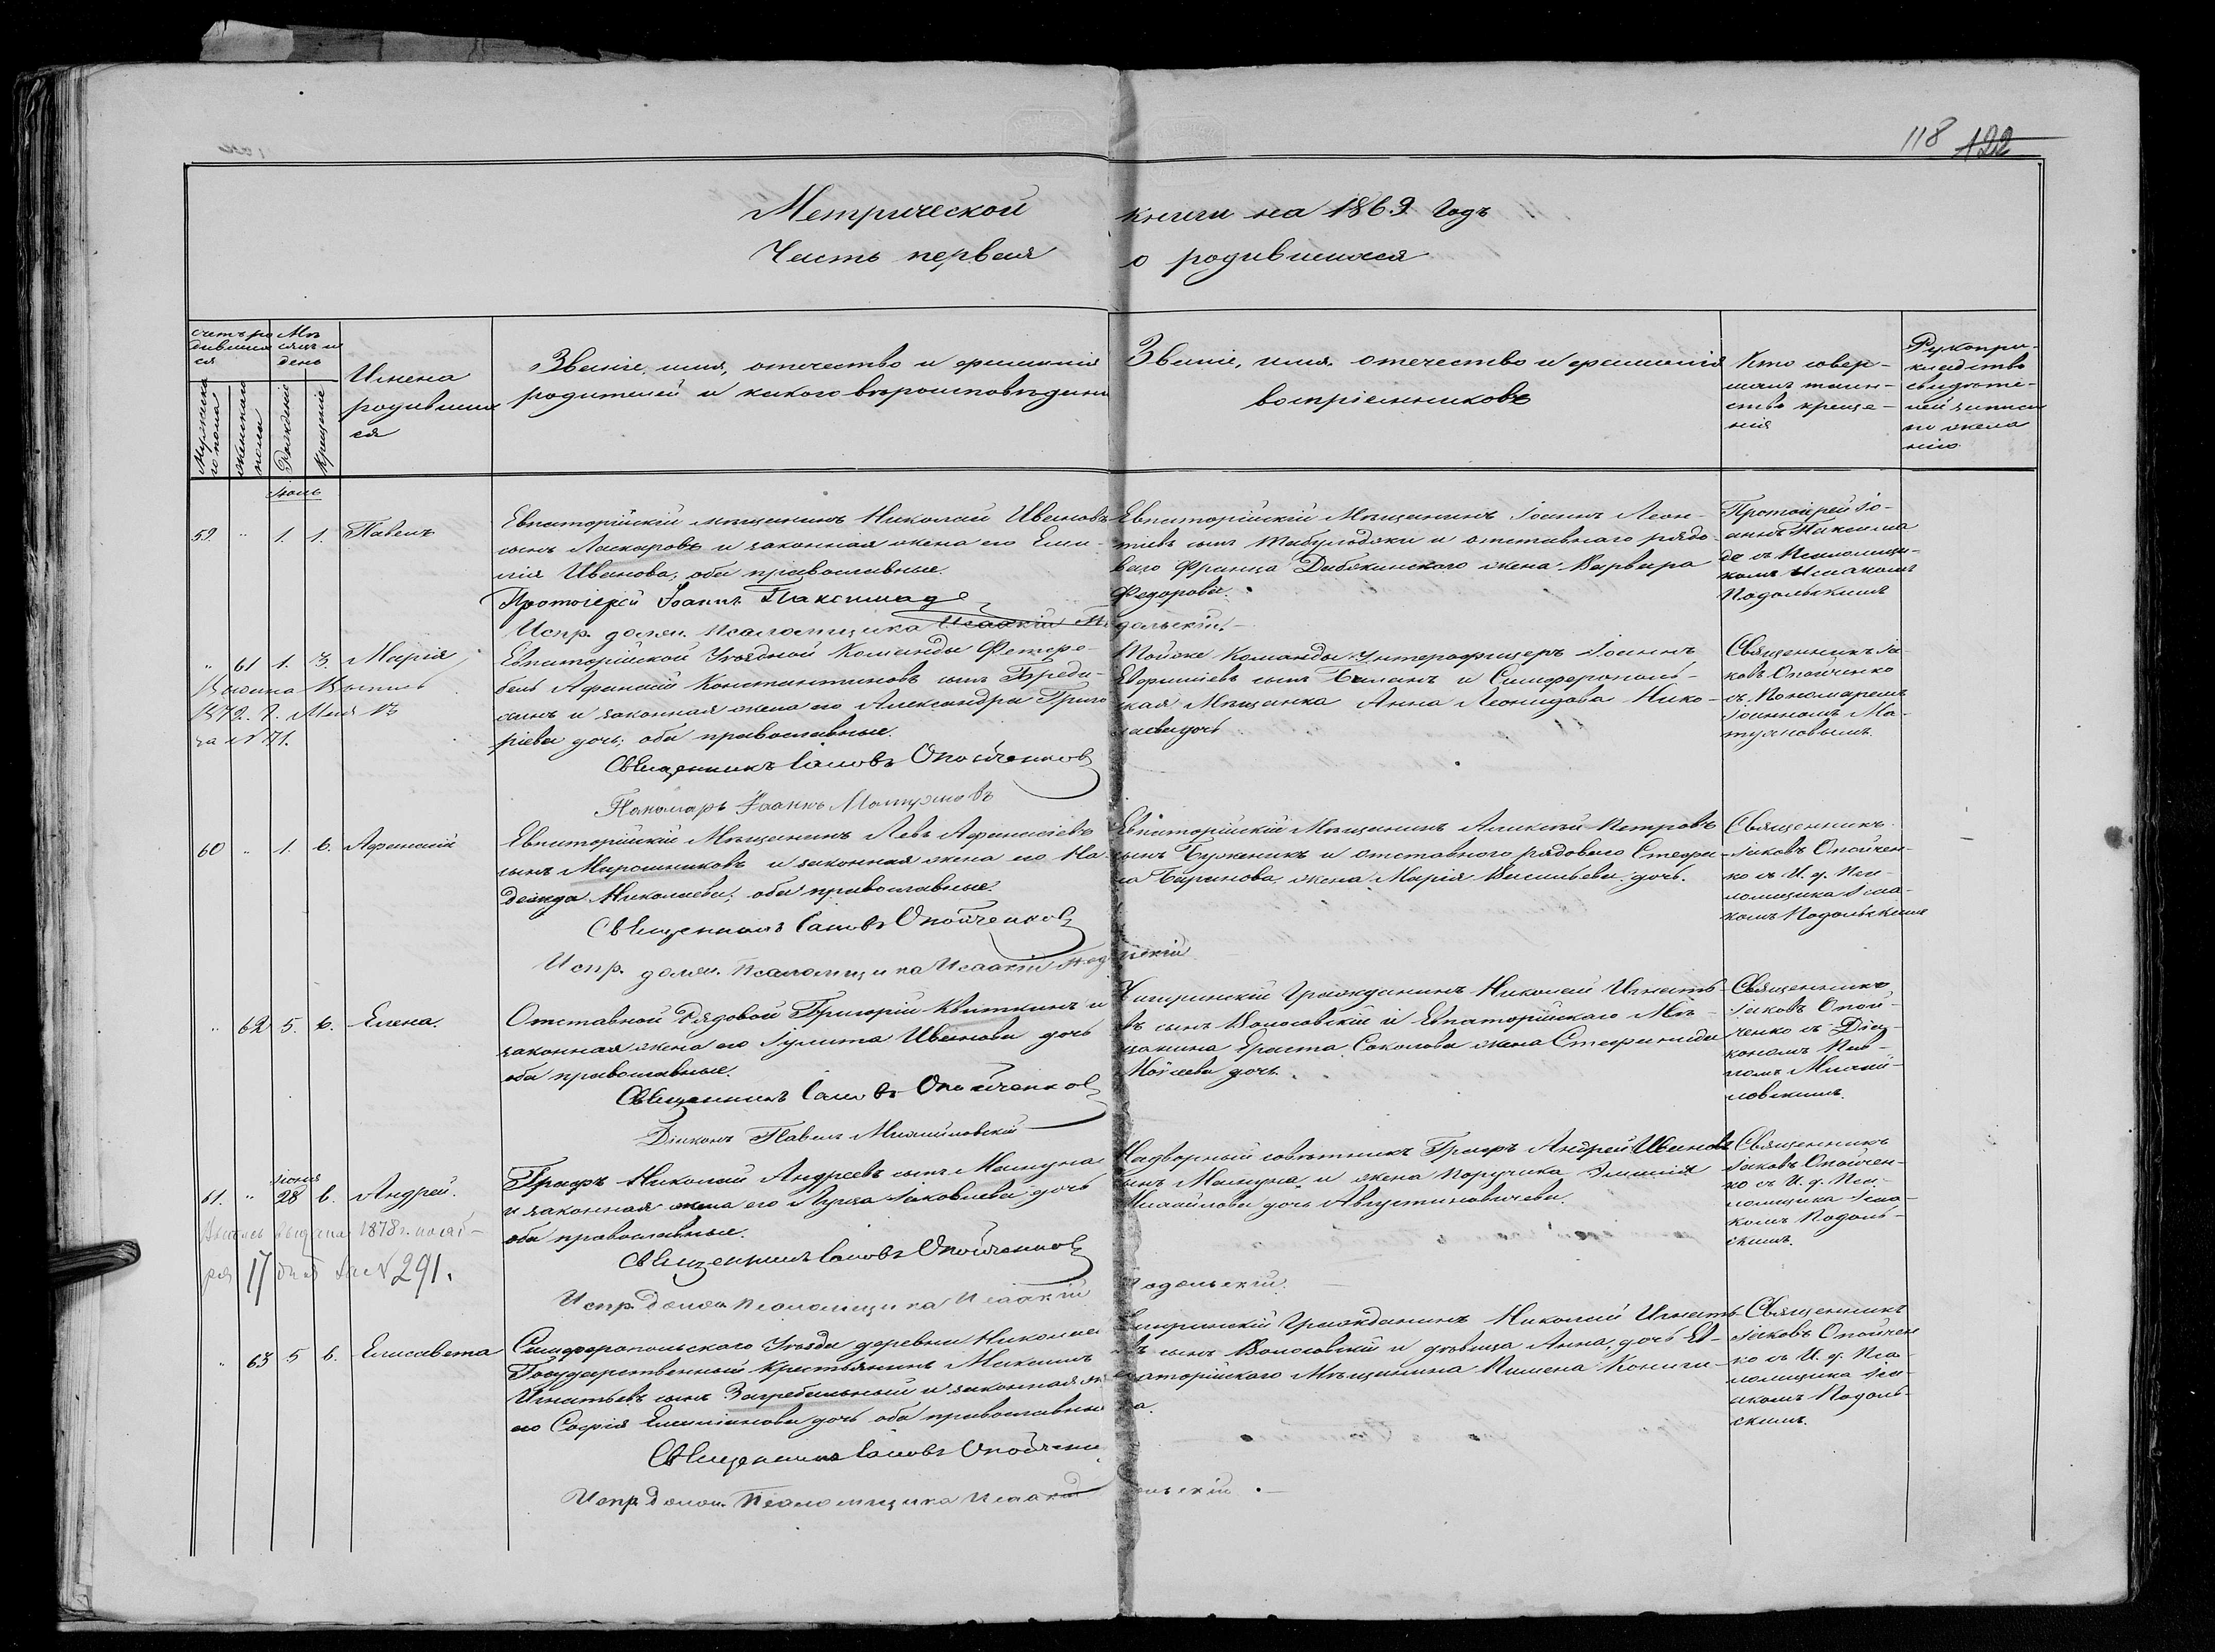 118 122
Метрической книги на 1869 годъ
Часть первая о родившихся
Счетъ ро
дивших
ся
Мѣ
сяцъ и
день
Мужеска
го пола
женскаго
пола
Рожденіе
Крещеніе
Имена
родивших
ся
Званіе, имя, отечество и фамилія
родителей и какого вѣроисповѣданія
Званіе, имя, отечество и фамилія
воспріемниковъ
Кто совер-
шалъ таин-
ство креще-
нія
Рукопри-
кладство
свидѣте-
лей записи
по жела
нію
Іюль
59. " 1. 1. Павелъ
Евпаторійскій мѣщанинъ Николай Ивановъ
сынъ Ласкаровъ и законная жена его Еми-
лія Иванова, оба православные.
Протоіерей Іоаннъ Паксимаде
Испр. долж. Псаломщика Исаакій Подольскій.
Евпаторійскій Мѣщанинъ Іоаннъ Леон-
тіевъ сынъ Табульджи и отставнаго рядо-
ваго Франца Дибжинскаго жена Варвара
Федорова.
Протоіерей Іо-
аннъ Паксима
де съ Псаломщи-
комъ Исаакомъ
Подольскимъ
" 61 1. 3. Марія
1872. г. Мая
за № 171.
Евпаторійской Уѣздной Команды Фельдфе-
бель Афанасій Константиновъ сынъ Бреди-
хинъ и законная жена его Александра Григо
ріева дочь; оба православные.
Священникъ Іаковъ Опойченковъ
Пономарь Іоаннъ Матужновъ
Тойже Команды Унтерофицеръ Іоаннъ
сынъ Баланъ и Симферополь-
ская Мѣщанка Анна Леонидова Нико-
лаева дочь
Священникъ Іа-
ковъ Опойченко
съ Пономаремъ
Іоанномъ Ма-
тужновымъ.
60 " 1. 6. Афанасій
Евпаторійскій Мѣщанинъ Левъ Афанасіевъ
сынъ Мирошниковъ и законная жена его На
дежда Николаева; оба православные.
Священникъ Іаковъ Опойченковъ
Испр. долж. Псаломщика Исаакій Подольскій
Евпаторійскій Мѣщанинъ Алексѣй Петровъ
сынъ Буженикъ и отставнаго рядоваго Стефа-
на Баринова жена Марія Васильева дочь.
Священникъ
Іаковъ Опойчен-
ко съ И. д. Пса-
ломщика Іса-
комъ Подольскимъ
" 62 5. 6. Елена.
Отставной Рядовой Григорій Квиткинъ и
законная жена его Іулита Иванова дочь
оба православные.
Священникъ Іаковъ Опойченковъ
Діаконъ Павелъ Михайловскій
Гражданинъ Николай Игнать-
евъ сынъ Волосовскій и Евпаторійскаго Мѣ-
щанина Ераста Соколова жена Стефанида
Моисеева дочь.
Священникъ
Іаковъ Опой-
ченко съ Діа-
кономъ Пав-
ломъ Михай-
ловскимъ.
Іюня
61. " 28 6. Андрей.
Выпись выдана 1878 г. нояб-
ря 17 дня за № 291.
Графъ Николай Андреевъ сынъ Мамуна
и законная жена его Луиза Іаковлева дочь
оба православные.
Священникъ Іаковъ Опойченковъ
Испр. долж. Псаломщика Исаакій Подольскій.
Надворный совѣтникъ Графъ Андрей Ивановъ
сынъ Мамуна и жена поручика Эмилія
Михайлова дочь Августиновичева.
Священникъ
Іаковъ Опойчен-
ко съ И. д. Пса-
ломщика Іса-
комъ Подоль-
скимъ.
" 63 5 6. Елисавета
Симферопольскаго Уѣзда деревни Николаев
Государственный крестьянинъ Максимъ
Игнатьевъ сынъ Загребельный и законная ж
его Софія Емеліянова дочь оба православны
Священникъ Іаковъ Опойченк
Испр. долж. Псаломщика Исаакій Подольскій.
Гражданинъ Николай Игнать-
евъ сынъ Волосовскій и дѣвица Анна, дочь Ев-
паторійскаго Мѣщанина Пимена
Священникъ
Іаковъ Опойчен
ко съ И. д. Пса-
ломщика Іса-
акомъ Подоль-
скимъ.